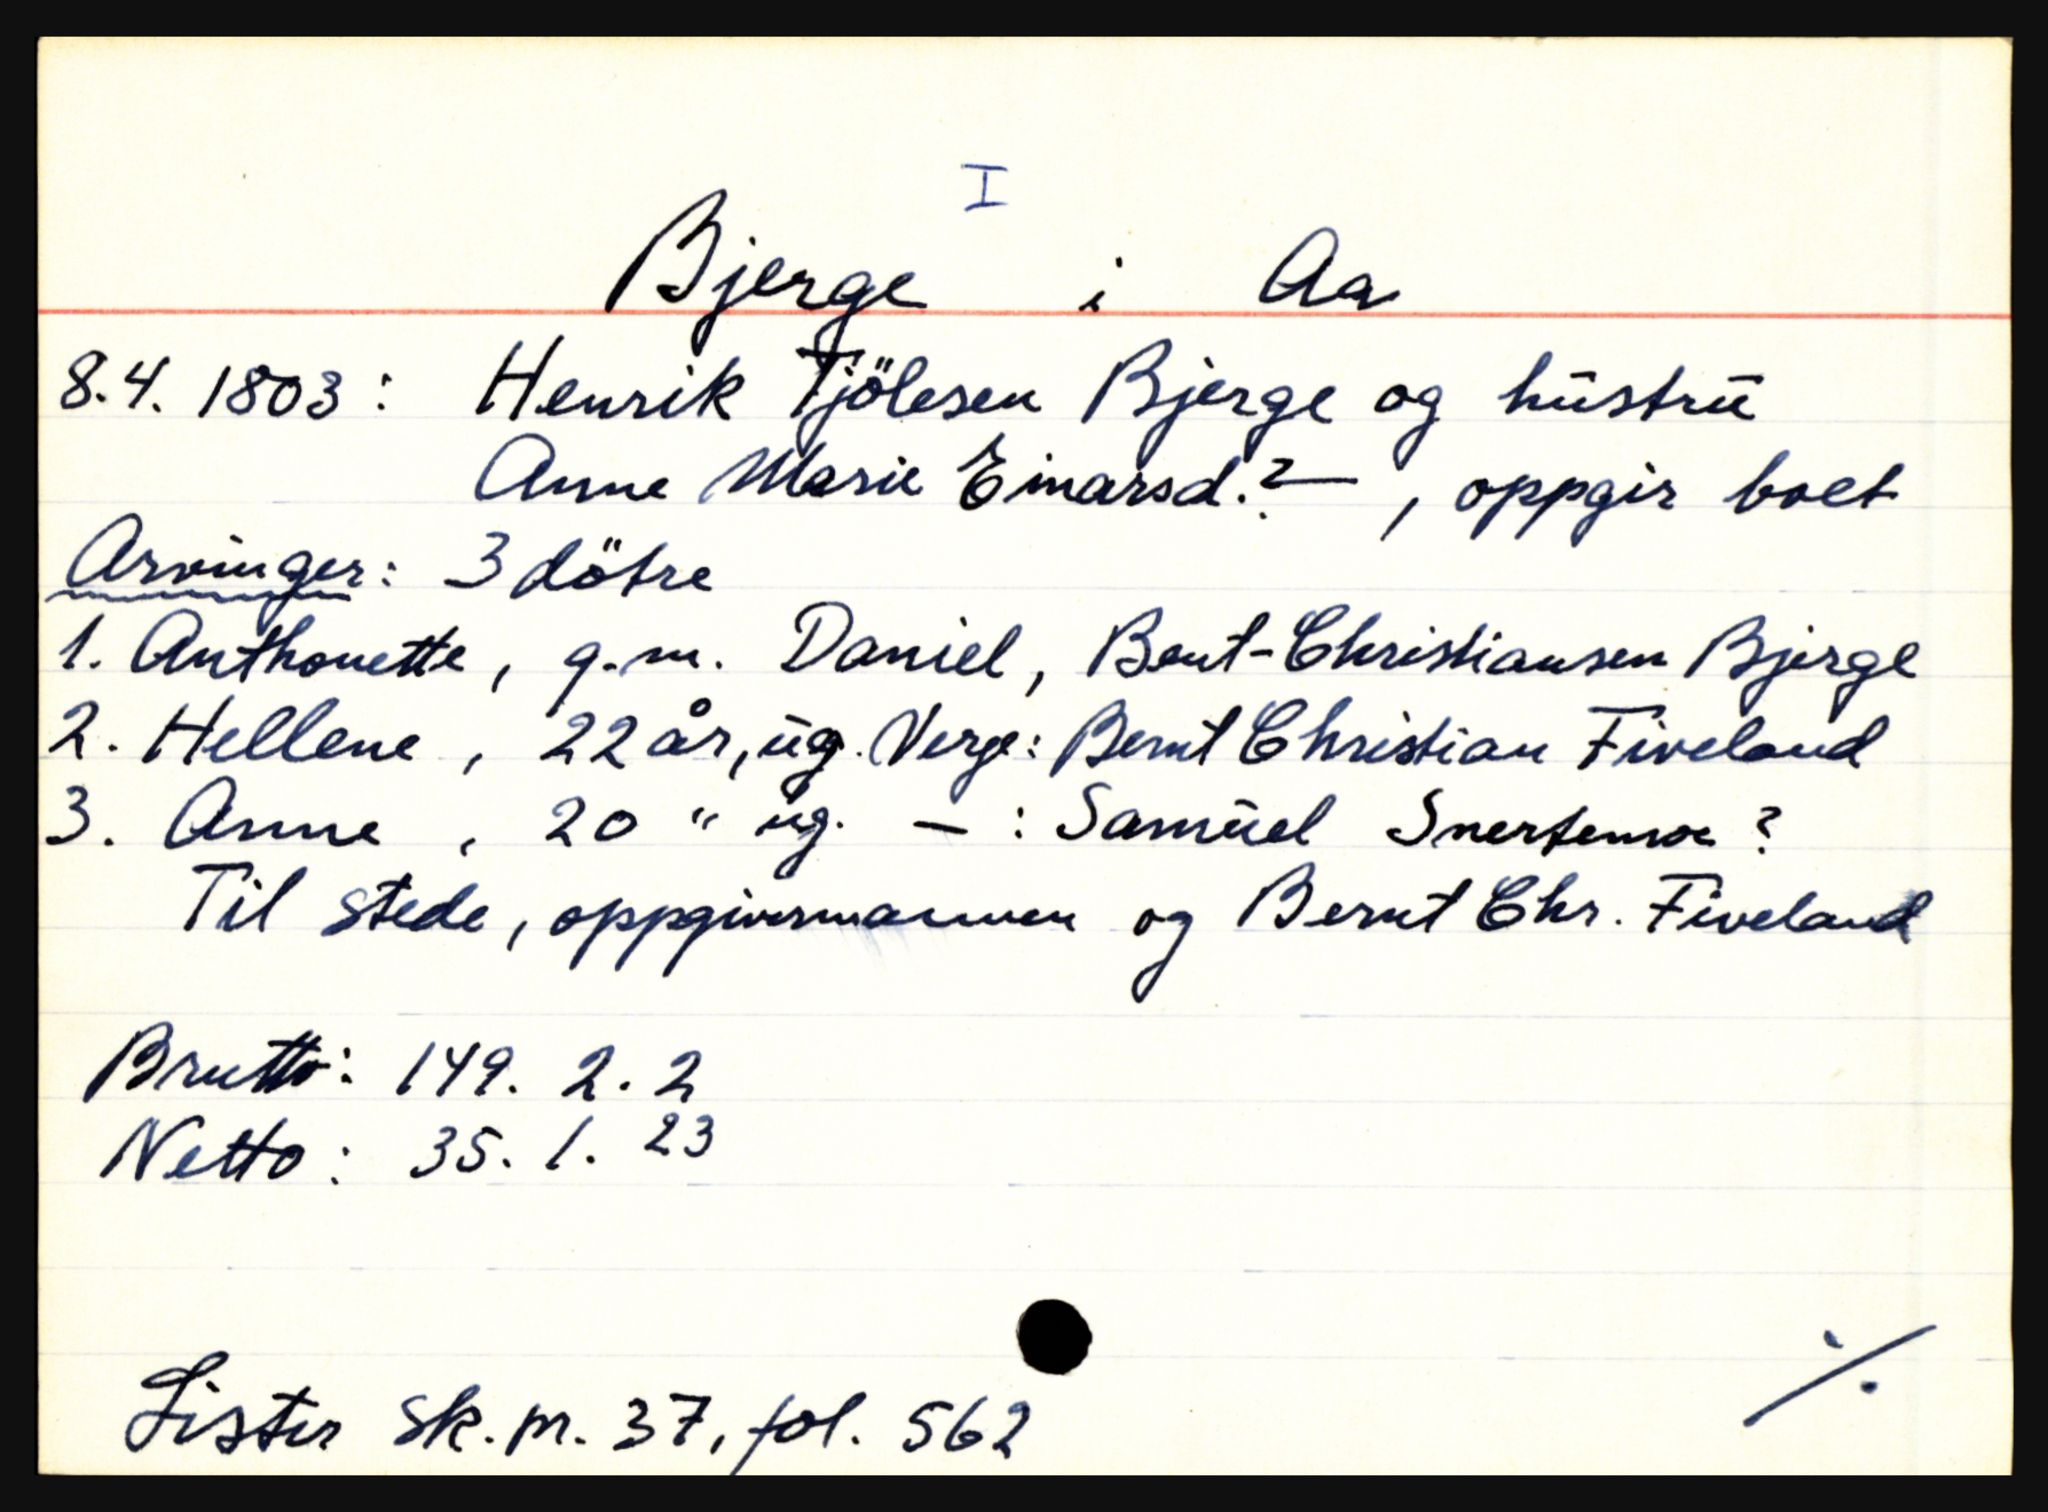 I
Bjerge i Aa
8.4. 1803: Henrik Tjölesen Bjerge og hūstrū
Anne Marie Einarsd.? —, oppgir boet
Arvinger: 3 dötre
1. Anthonette, g.m. Daniel, Bent-Christiansen Bjerge
2. Hellene, 22 år, ūg. Verge: Bernt Christian Fiveland
3. Anne, 20 " ūg. — : Samūel Snertemoe?
Til stede, oppgivermannen og Bernt Chr. Fiveland
Brutto: 149. 2. 2
Netto: 35. 1. 23
Lister sk.pr. 37, fol. 562
./.